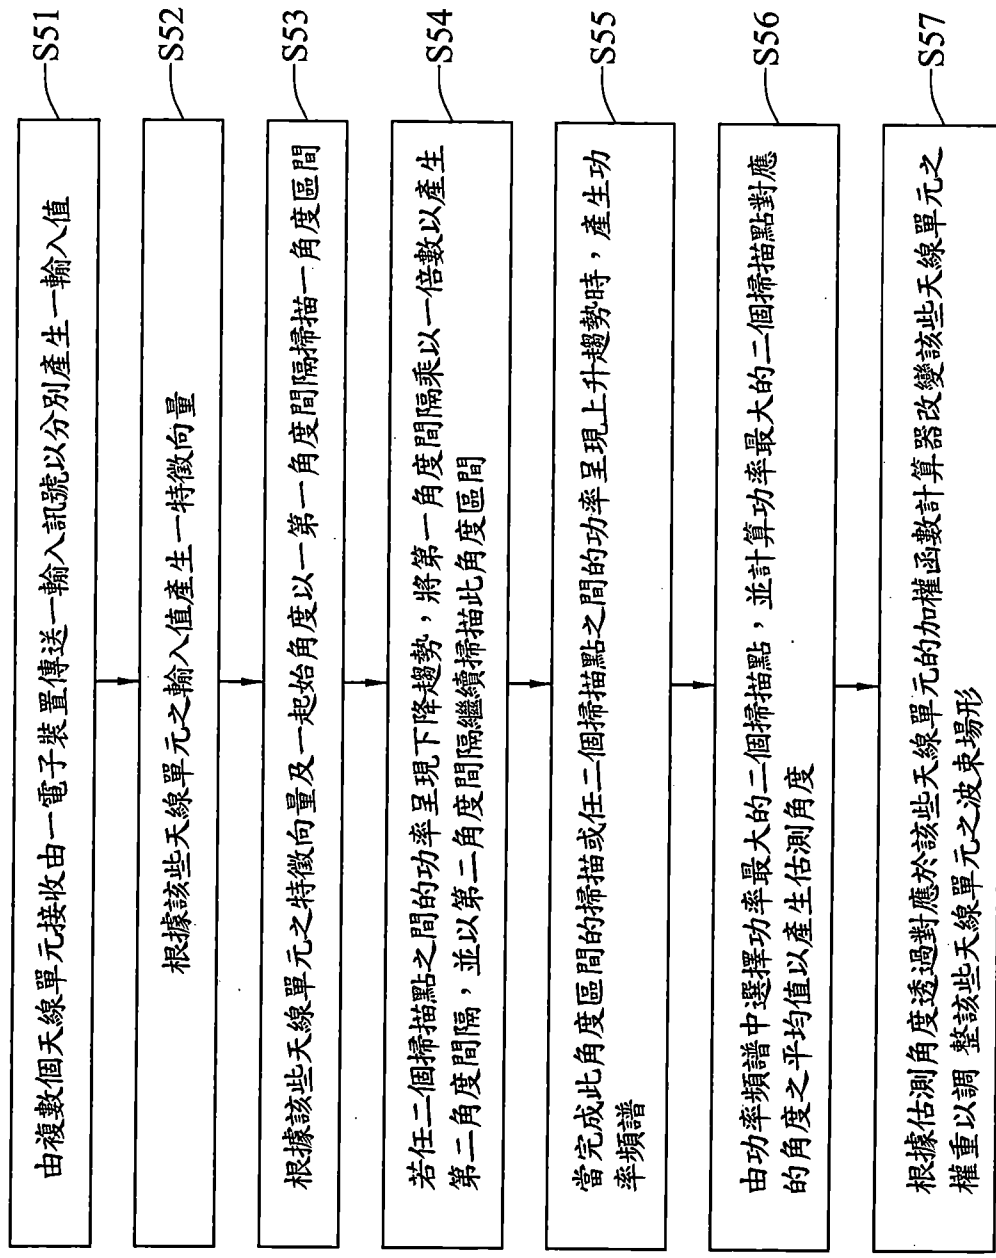 由複數個天線單元接收由一電子裝置傳送一輸入訊號以分別產生一輸入值
S51
根據該些天線單元之輸入值產生一特徵向量
S52
根據該些天線單元之特徵向量及一起始角度以一第一角度間隔掃描一角度區間
S53
若任二個掃描點之間的功率呈現下降趨勢，將第一角度間隔乘以一倍數以產生
第二角度間隔，並以第二角度間隔繼續掃描此角度區間
S54
當完成此角度區間的掃描或任二個掃描點之間的功率呈現上升趨勢時，產生功
率頻譜
S55
由功率頻譜中選擇功率最大的二個掃描點，並計算功率最大的二個掃描點對應
的角度之平均值以產生估測角度
S56
根據估測角度透過對應於該些天線單元的加權函數計算器改變該些天線單元之
權重以調 整該些天線單元之波束場形
S57